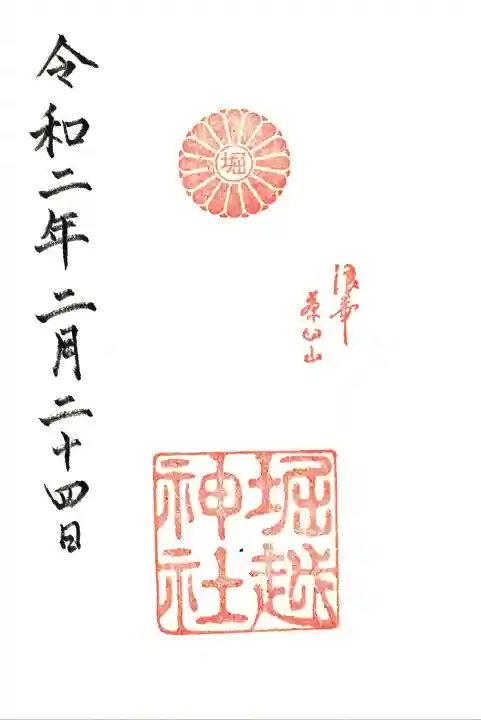 堀
浪華
茶臼山
堀越
神社
令和二年二月二十四日